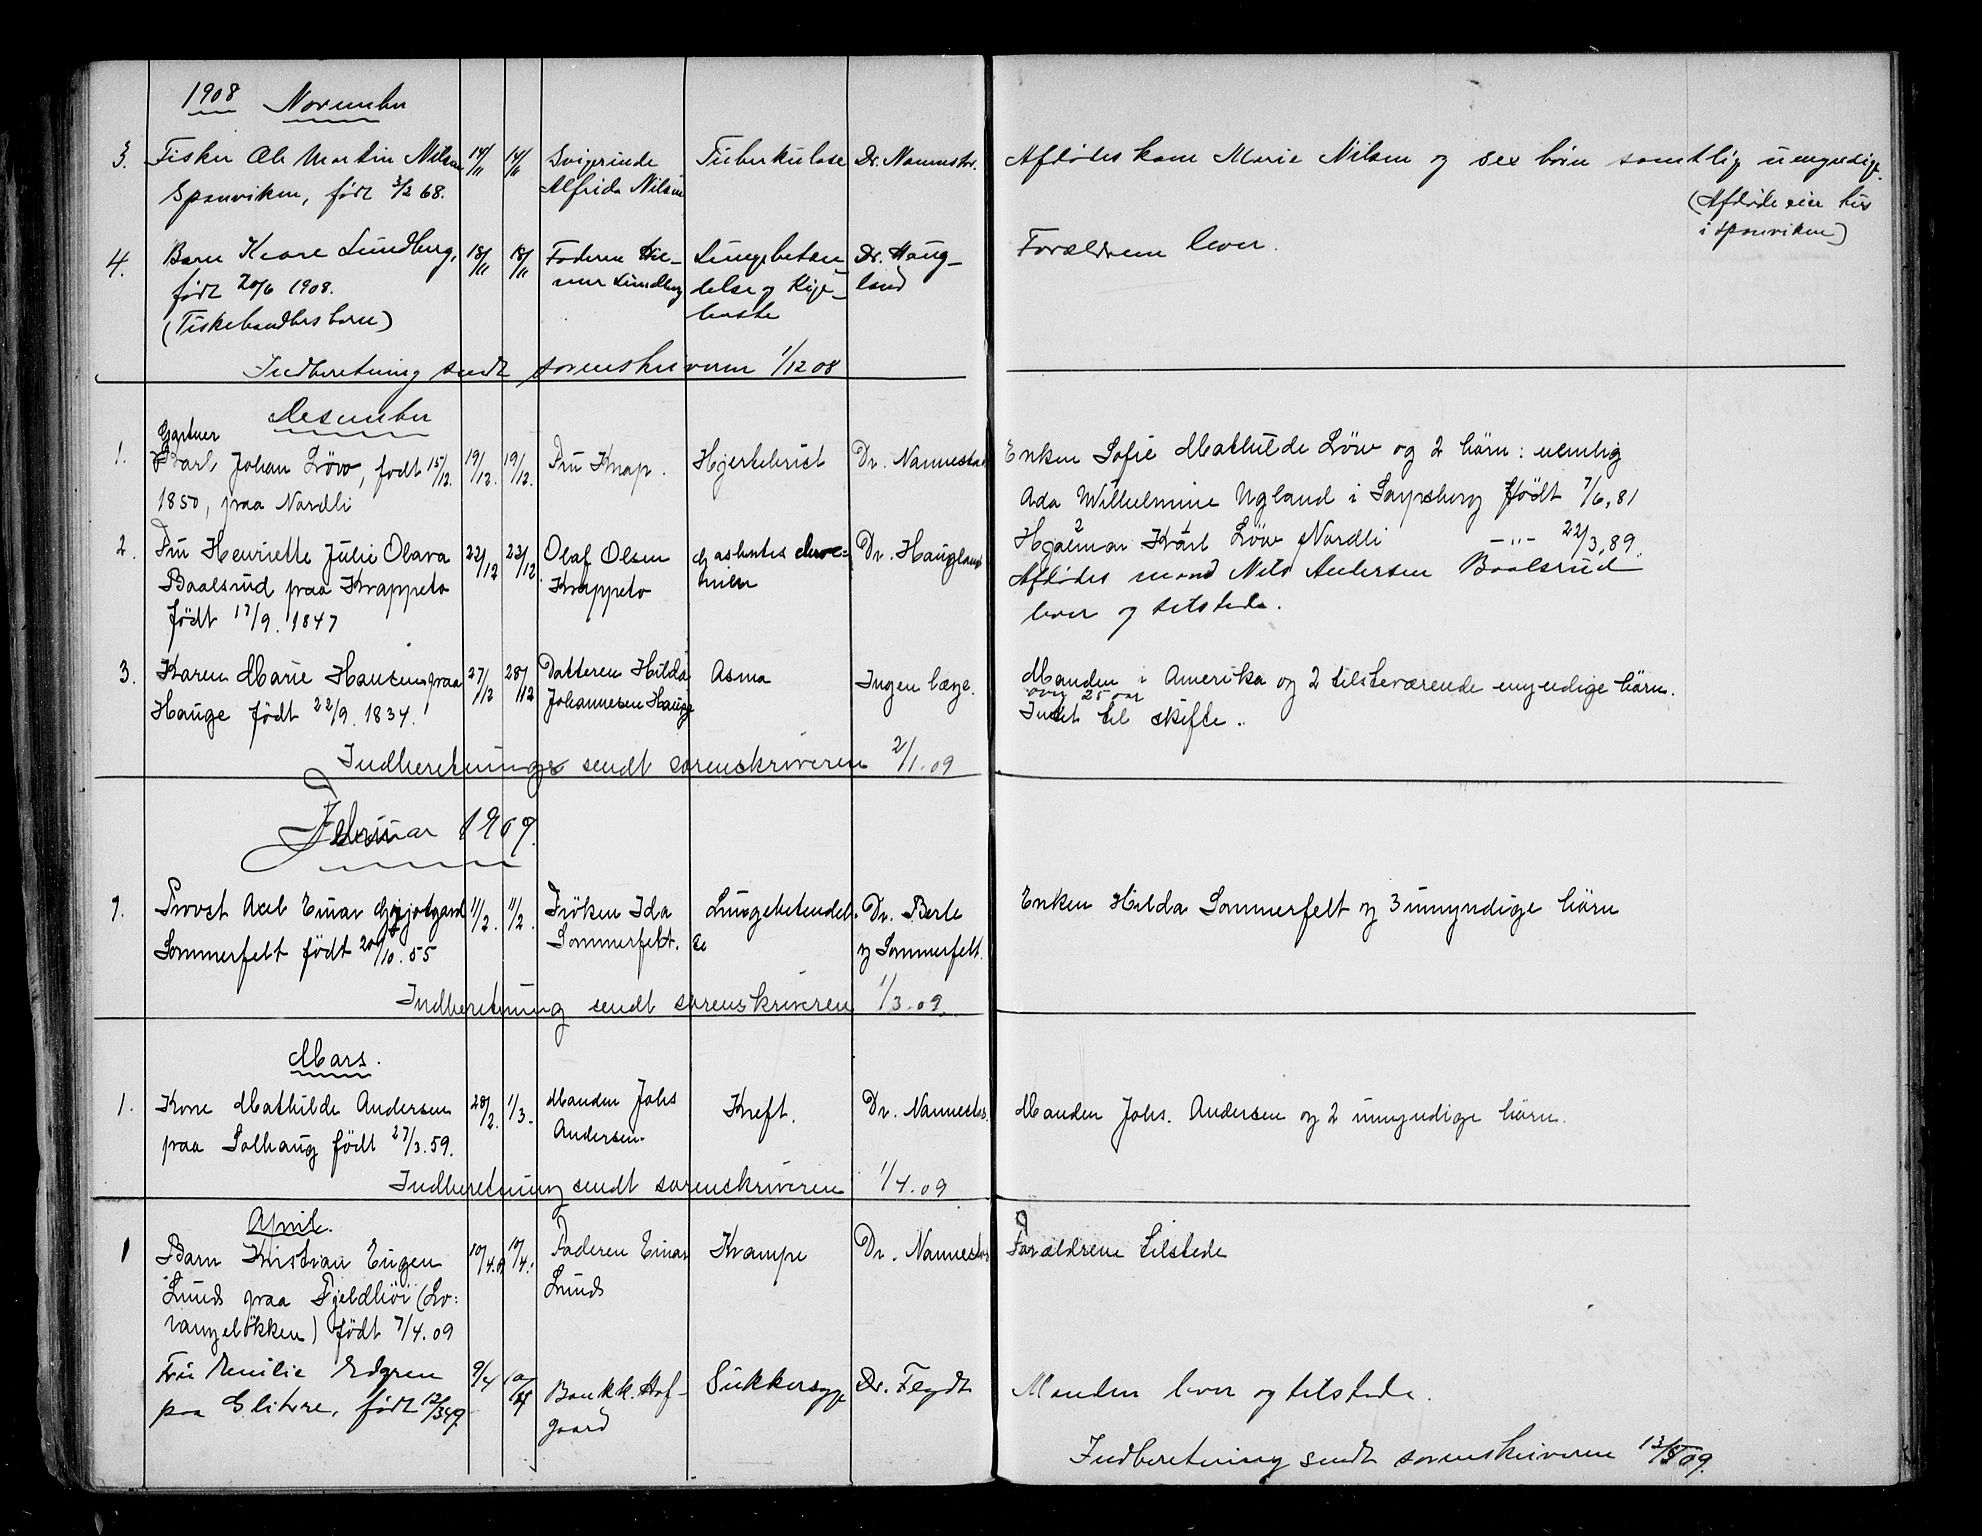 1908 November
3. Fisker Ole Martin Nilsen 14/11 14/11 Svigerinde Tuberkulose Dr. Nannestr. Afdødes kone Marie Nilsen og sex børn samtlig umyndige.
Spanviken, født 3/2 68. Alfrida Nilsen (Afdøde eier hus
i Spanviken)
4. Barn Kaare Lundberg, 18/11 18/11 Faderen Hil- Lungebetæn- Dr. Haug- Forældrene lever.
født 20/6 1908. mer Lundberg delse og Kig- land
(Fiskehandlers barn) hoste
Indberetning sendt sorenskriveren 1/12 08
Desember
Gartner
1. Karl Johan Löw, født 15/12. 19/12. 19/12. Fru Knap. Hjertefeil Dr. Nannestad Enken Sofie Mathilde Löw og 2 børn: nemlig
1850, paa Nordli Ada Wilhelmine Ugland i Sarpsborg født 7/6, 81
Hjalmar Karl Löw Nordli -"- 22/3, 89.
2. Fru Henriette Julie Olava 22/12 23/12 Olaf Olsen Dr. Haugland Afdødes mand Nils Andersen Baalsrud
Baalsrud paa Knappeto Knappeto lever og tilstede.
født 17/9. 1847
3. Karen Marie Hansen paa 27/12 28/12 Datteren Hilda Asma Ingen læge. Manden i Amerika og 2 tilsteværende myndige børn.
over 25 aar
Hauge født 22/9. 1834. Johannesen Hauge Intet til skifte.
Indberetninge sendt sorenskriveren 2/1.09
Februar 1909.
1. Provst Axel Einar 11/2. 11/2. Frøken Ida Lungebetendel- Dr. Berle Enken Hilda Sommerfelt og 3 umyndige børn
Sommerfelt født 20/10. 55 Sommerfelt. se og Sommerfelt.
Indberetning sendt sorenskriveren 1/3.09.
Mars.
1. Kone Mathilde Andersen 28/2. 1/3. Manden Johs Kreft. Dr. Nannestad. Manden Johs. Andersen og 2 umyndige børn.
paa Solhaug født 27/3.59. Andersen.
Indberetning sendt sorenskriveren 1/4.09
April.
1 Barn Kristian Eugen 10/4.09 10/4. Faderen Einar Krampe Dr. Nannestad Forældrene tilstede
Lunds paa Fjeldhöi (Lo- Lunds
vangelökken) født 7/4.09
Fru Emilie Edgren 9/4 10/4 Bankk. Hof- Sukkersyge Dr. Flgdt Manden lever og tilstede.
paa Glitre, født 12/3 49. gaard
Indberetning sendt sorenskriveren 13/5 09.